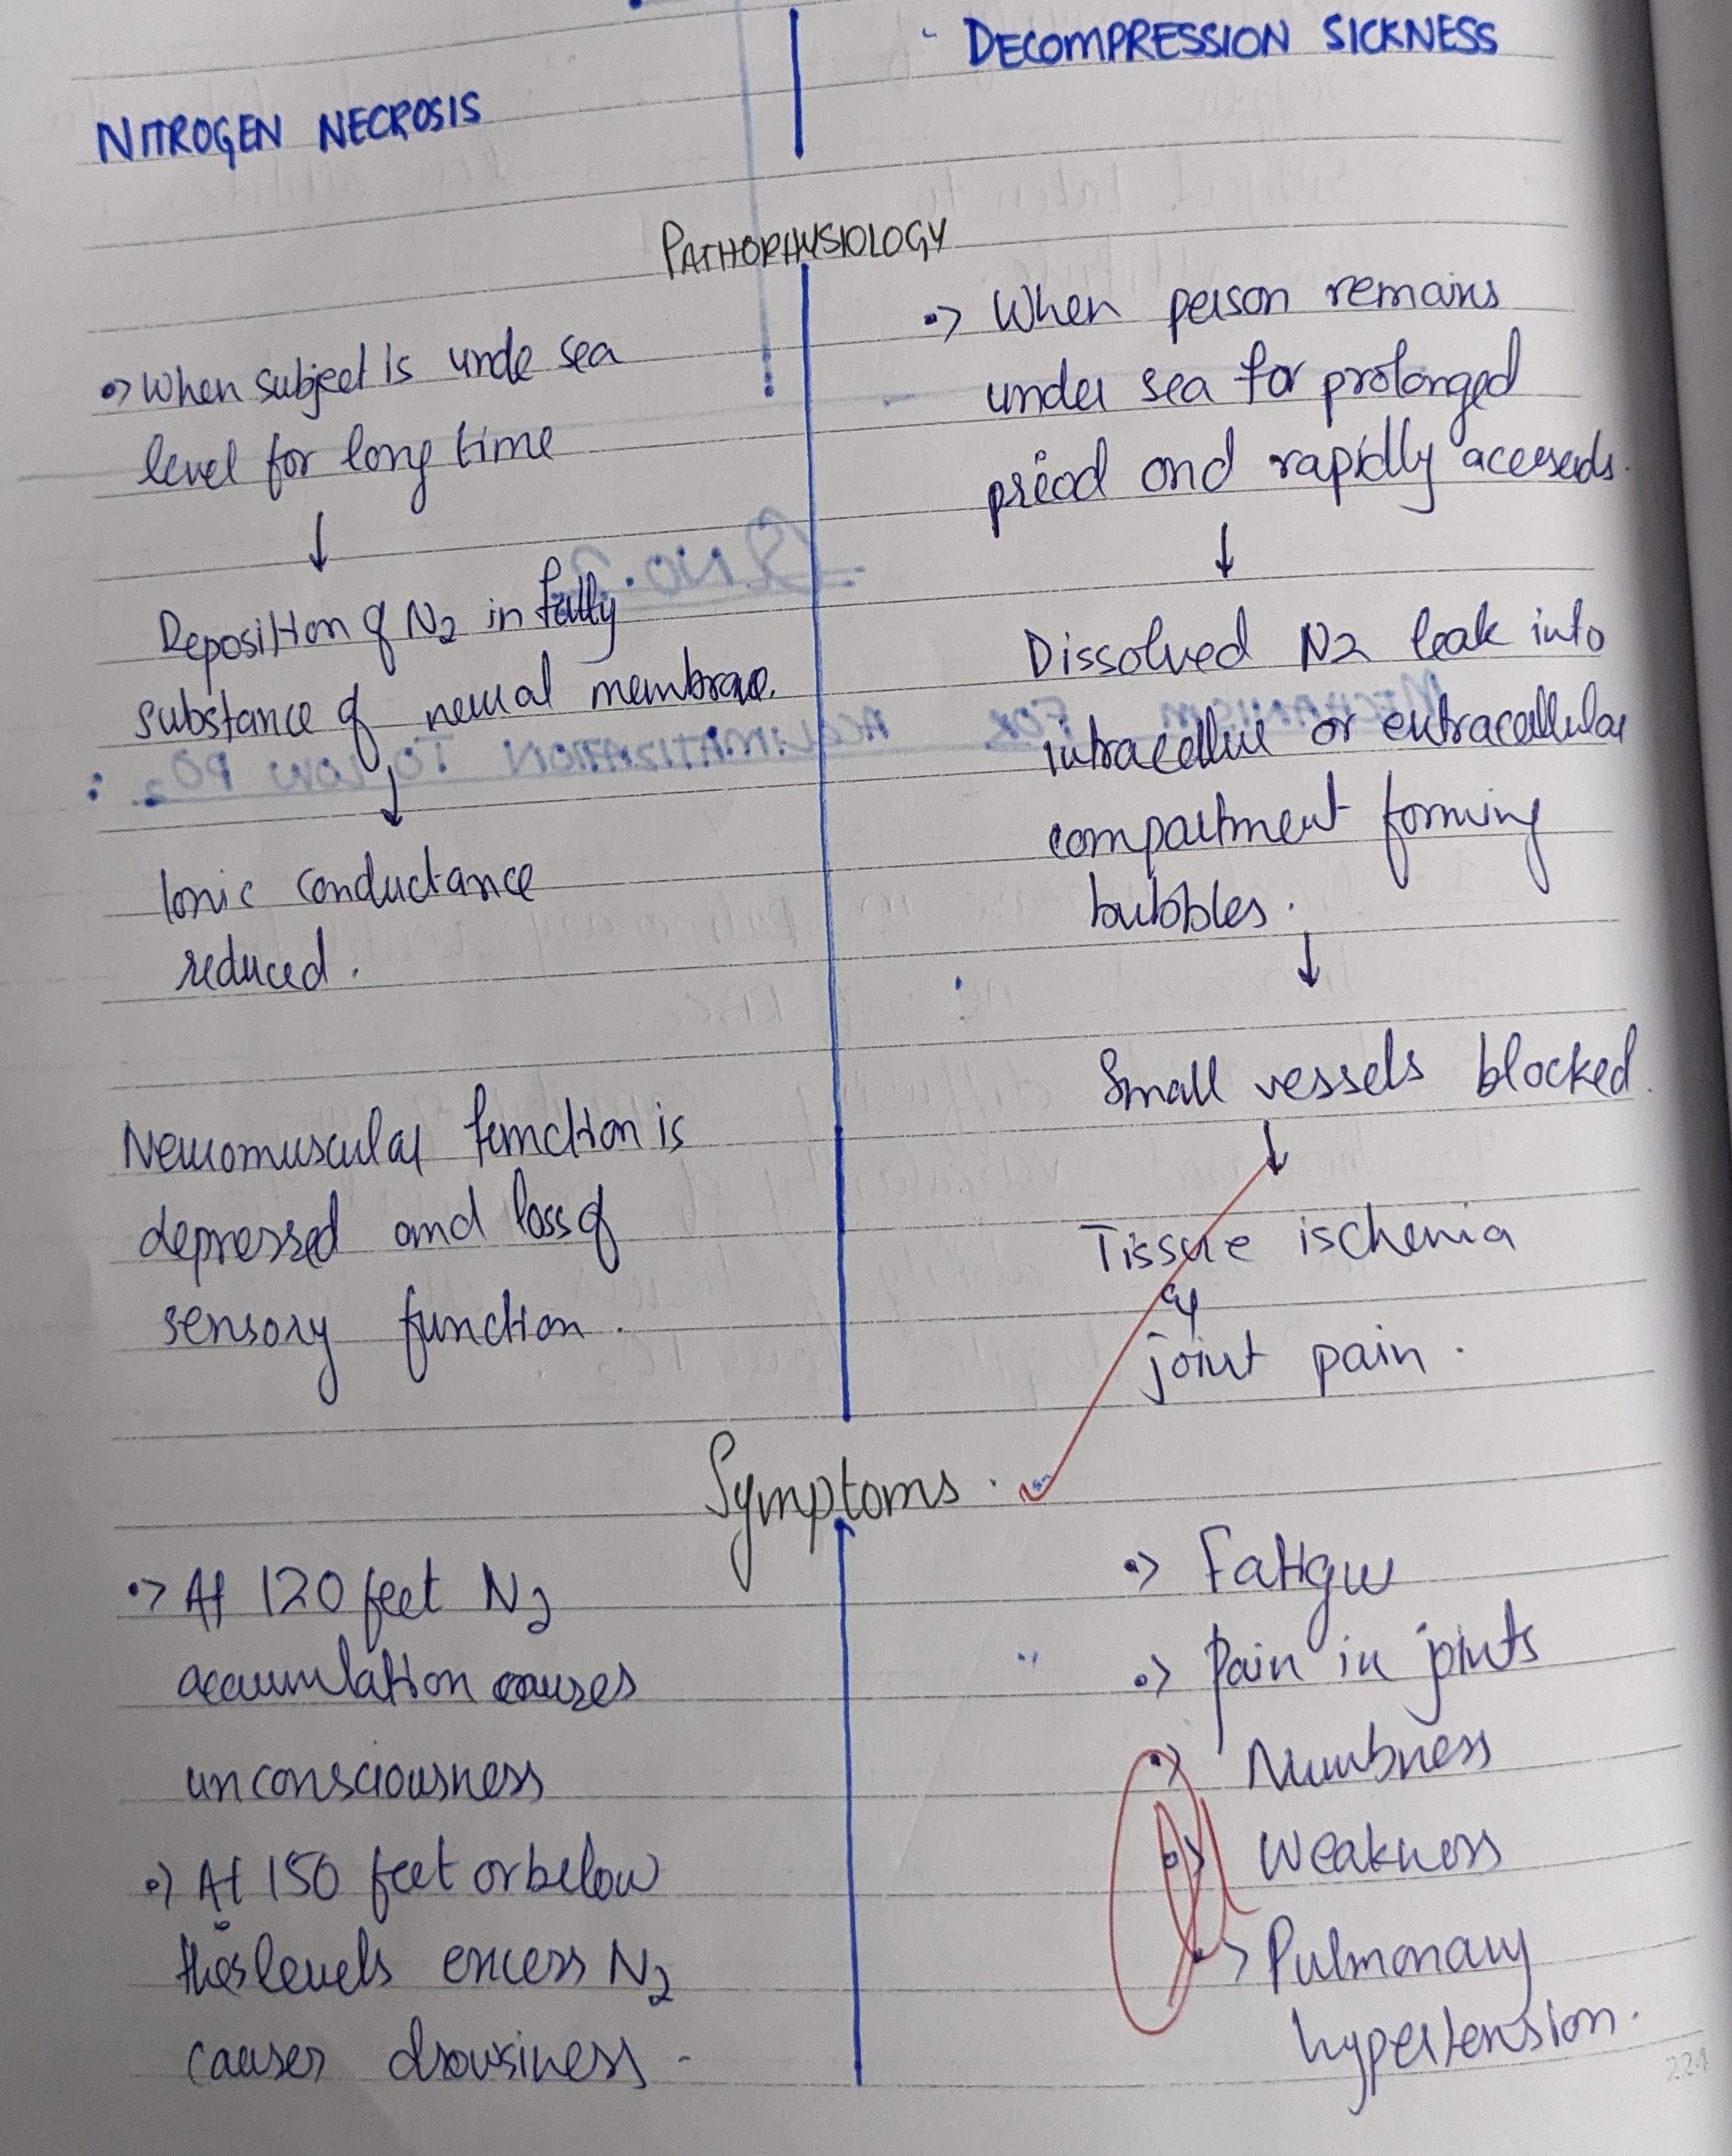 DECOMPRESSION SICKNESS
NITROGEN NECROSIS
PATHOPHYSIOLOGY
•> When subject is unde sea
level for long time
↓
Deposition of N2 in fatty
substance of neural membrane.
↓
Ionic conductance
reduced.
Neuromuscular function is
depressed and loss of
sensory function.
•> When person remains
under sea for prolonged
priod and rapidly
↓
Dissolved N2 leak into
or extracellular
compartment forming
bubbles.
↓
Small vessels blocked.
↓
Tissue ischemia
&
joint pain.
Symptoms.
•> At 120 feet N2
accumulation causes
unconsciousness
•> At 150 feet or below
levels excess N2
causes drowsiness.
•> Fatigue
•> Pain in joints
•> Numbness
•> Weakness
•> Pulmonary
hypertension.
224